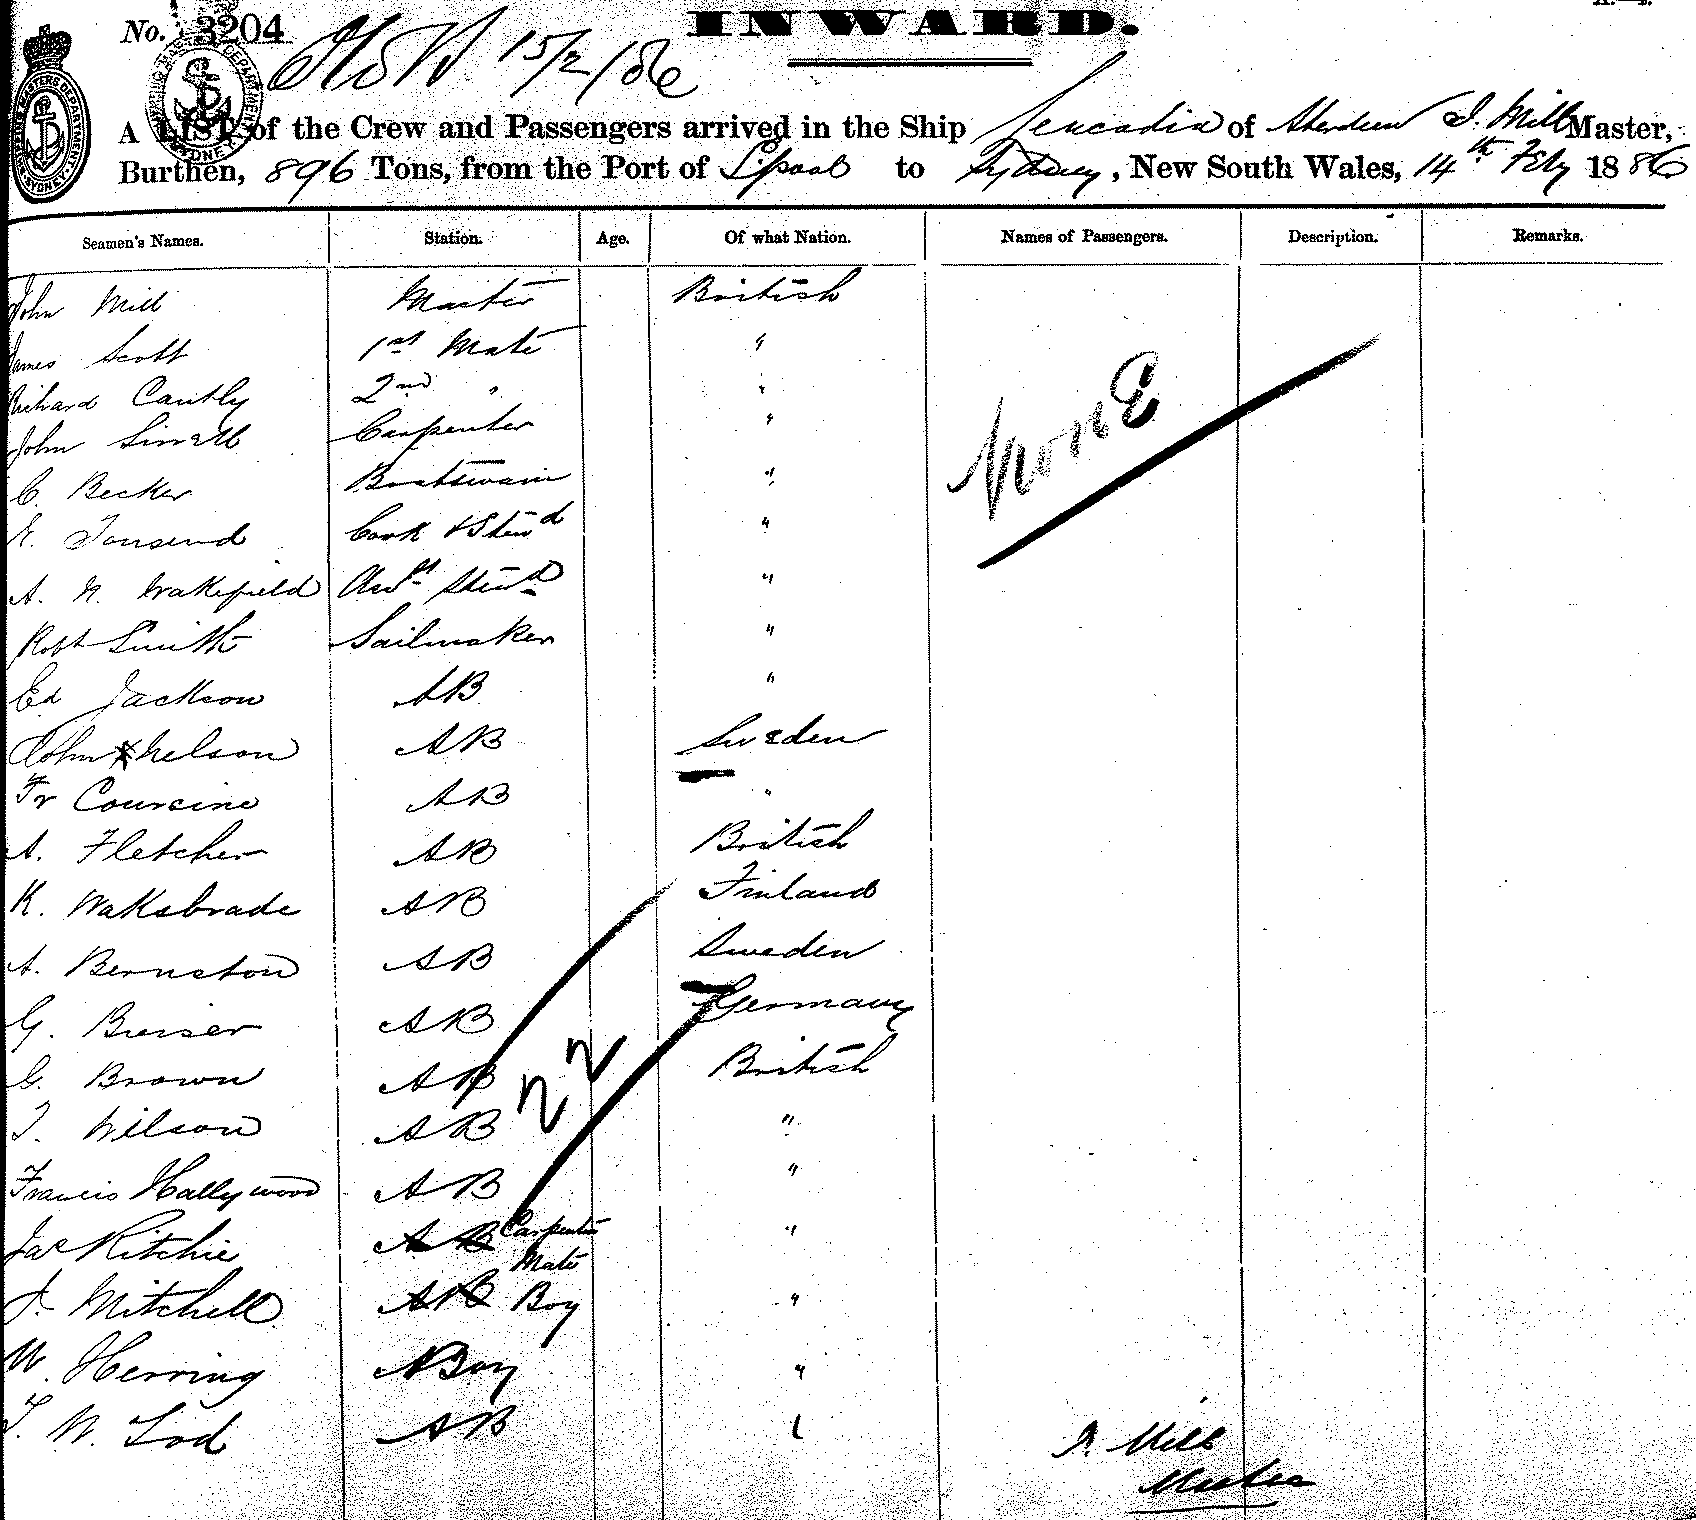 No. 3204 INWARD.
15/2/86
A LIST of the Crew and Passengers arrived in the Ship Leucadia of Aberdeen J. Mill Master,
Burthen, 896 Tons, from the Port of L'pool to Sydney, New South Wales, 14th Feby 1886
Seamen's Names. Station. Age. Of what Nation. Names of Passengers. Description. Remarks.
John Mill Master British
James Scott 1st Mate "
Richard Cantly 2nd " "
John Carpenter "
C. Becker Boatswain "
Tonsend Cook & Stewd "
A. N. Wakefield Asst Stewd "
Robt Smith Sailmaker "
Ed Jackson AB "
John Nelson AB Sweden
Fr Coursine AB "
A. Fletcher AB British
K. Waksbrade AB Finland
A. Bernston AB Sweden
G. Buiser AB Germany
C. Brown AB British
T. Wilson AB "
Francis Hallywood AB "
Jas Ritchie AB Carpenter Mate "
J. Mitchell AB Boy "
W. Herring Boy "
T. W. Tod AB "
NonE
22
J. Mill
Master